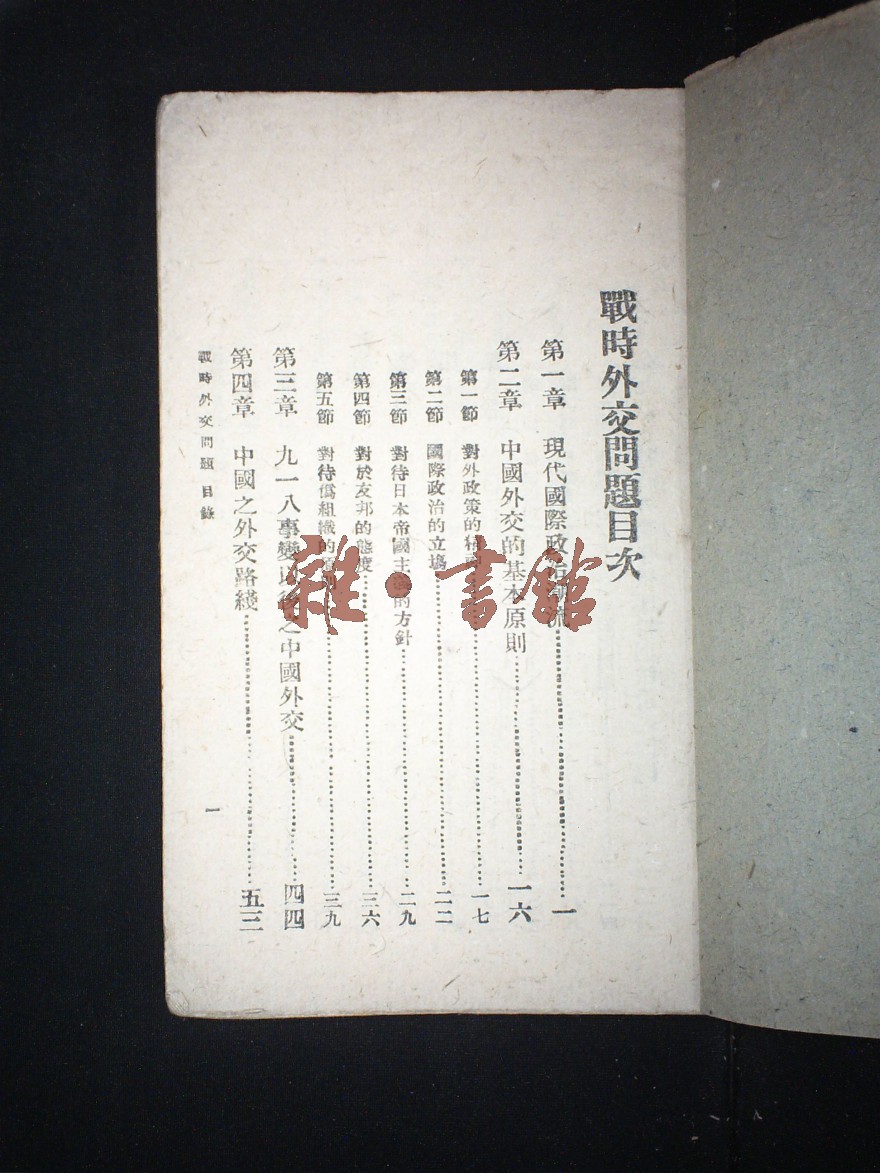 戰時外交問題目次
第一章 現代國際政治 流 一
第二章 中國外交的基本原則 一六
第一節 對外政策的精 一七
第二節 國際政治的立場 二二
第三節 對待日本帝國主 的方針 二九
第四節 對於友邦的態度 三六
第五節 對待僞組織的 三九
第三章 九一八事變以後之中國外交 四四
第四章 中國之外交路綫 五三
戰時外交問題 目錄
一
雜·書館